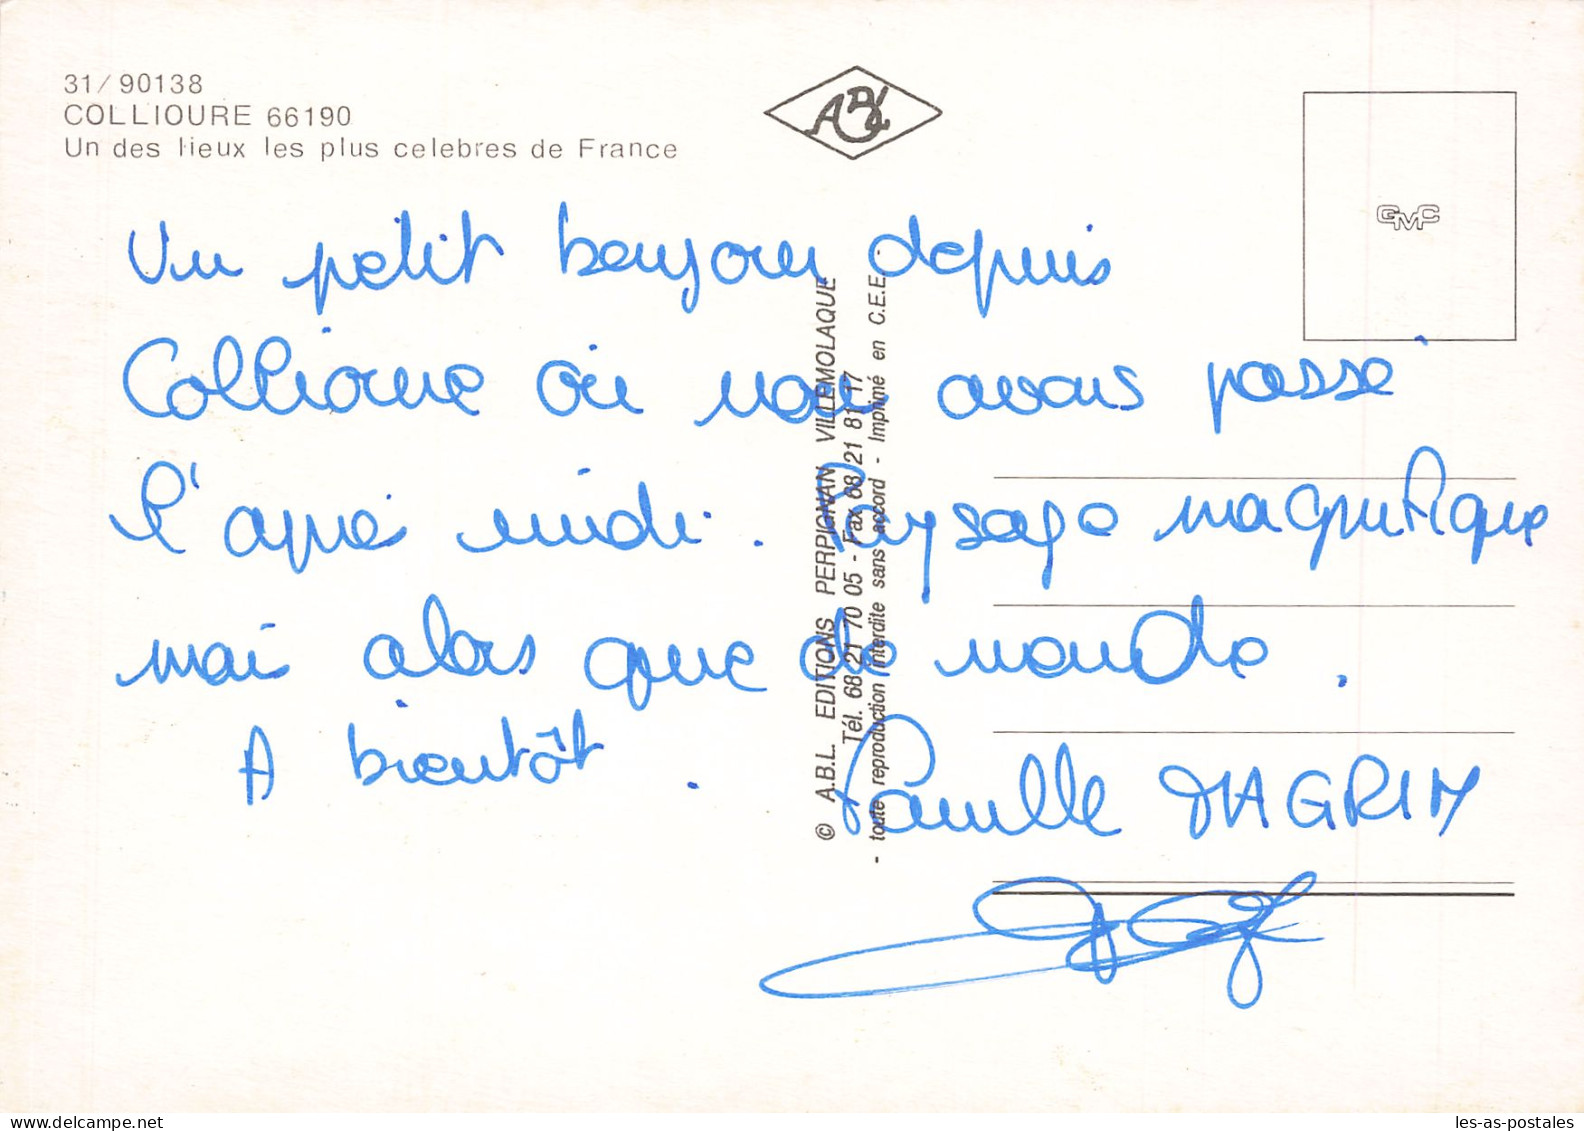 31/ 90138
COLLIOURE 66190
Un des lieux les plus celebres de France
ABL
GMC
Un petit bonjour depuis
Collioure où nous avons passé
l'après midi. Paysage magnifique
mais alors que de monde.
A bientôt.
Famille MAGRIN
© A.B.L. EDITIONS PERPIGNAN VILLEMOLAQUE
Tél. 68 21 70 05 - Fax 68 21 81 17
- toute reproduction interdite sans accord - Imprimé en C.E.E.
les-as-postales